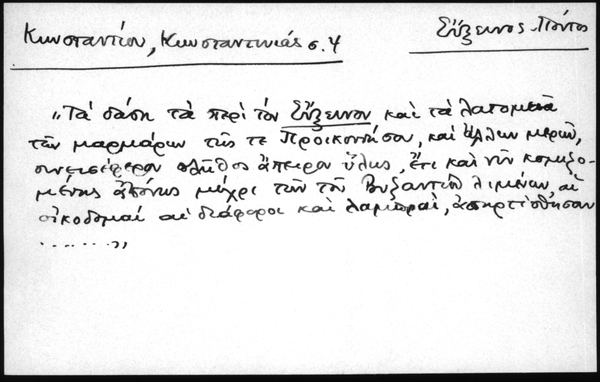 Κωνσταντίου, Κωνσταντινιάς σ. 4
Εὔξεινος Πόντος
"Τὰ δάση τὰ περὶ τὸν Εὔξεινον καὶ τὰ λατομεῖα
τῶν μαρμάρων τῆς τε Προικοννήσου, καὶ ἄλλων μερῶν,
συνεισέφερον πλῆθος ἄπειρον ὕλης, ἔτι καὶ νῦν κομιζο-
μένης ἀπόνως μέχρι τῶν τοῦ Βυζαντίου λιμένων, αἱ
οἰκοδομαὶ αἱ διάφοροι καὶ λαμπραὶ, ἀπηρτίσθησαν
.......,,